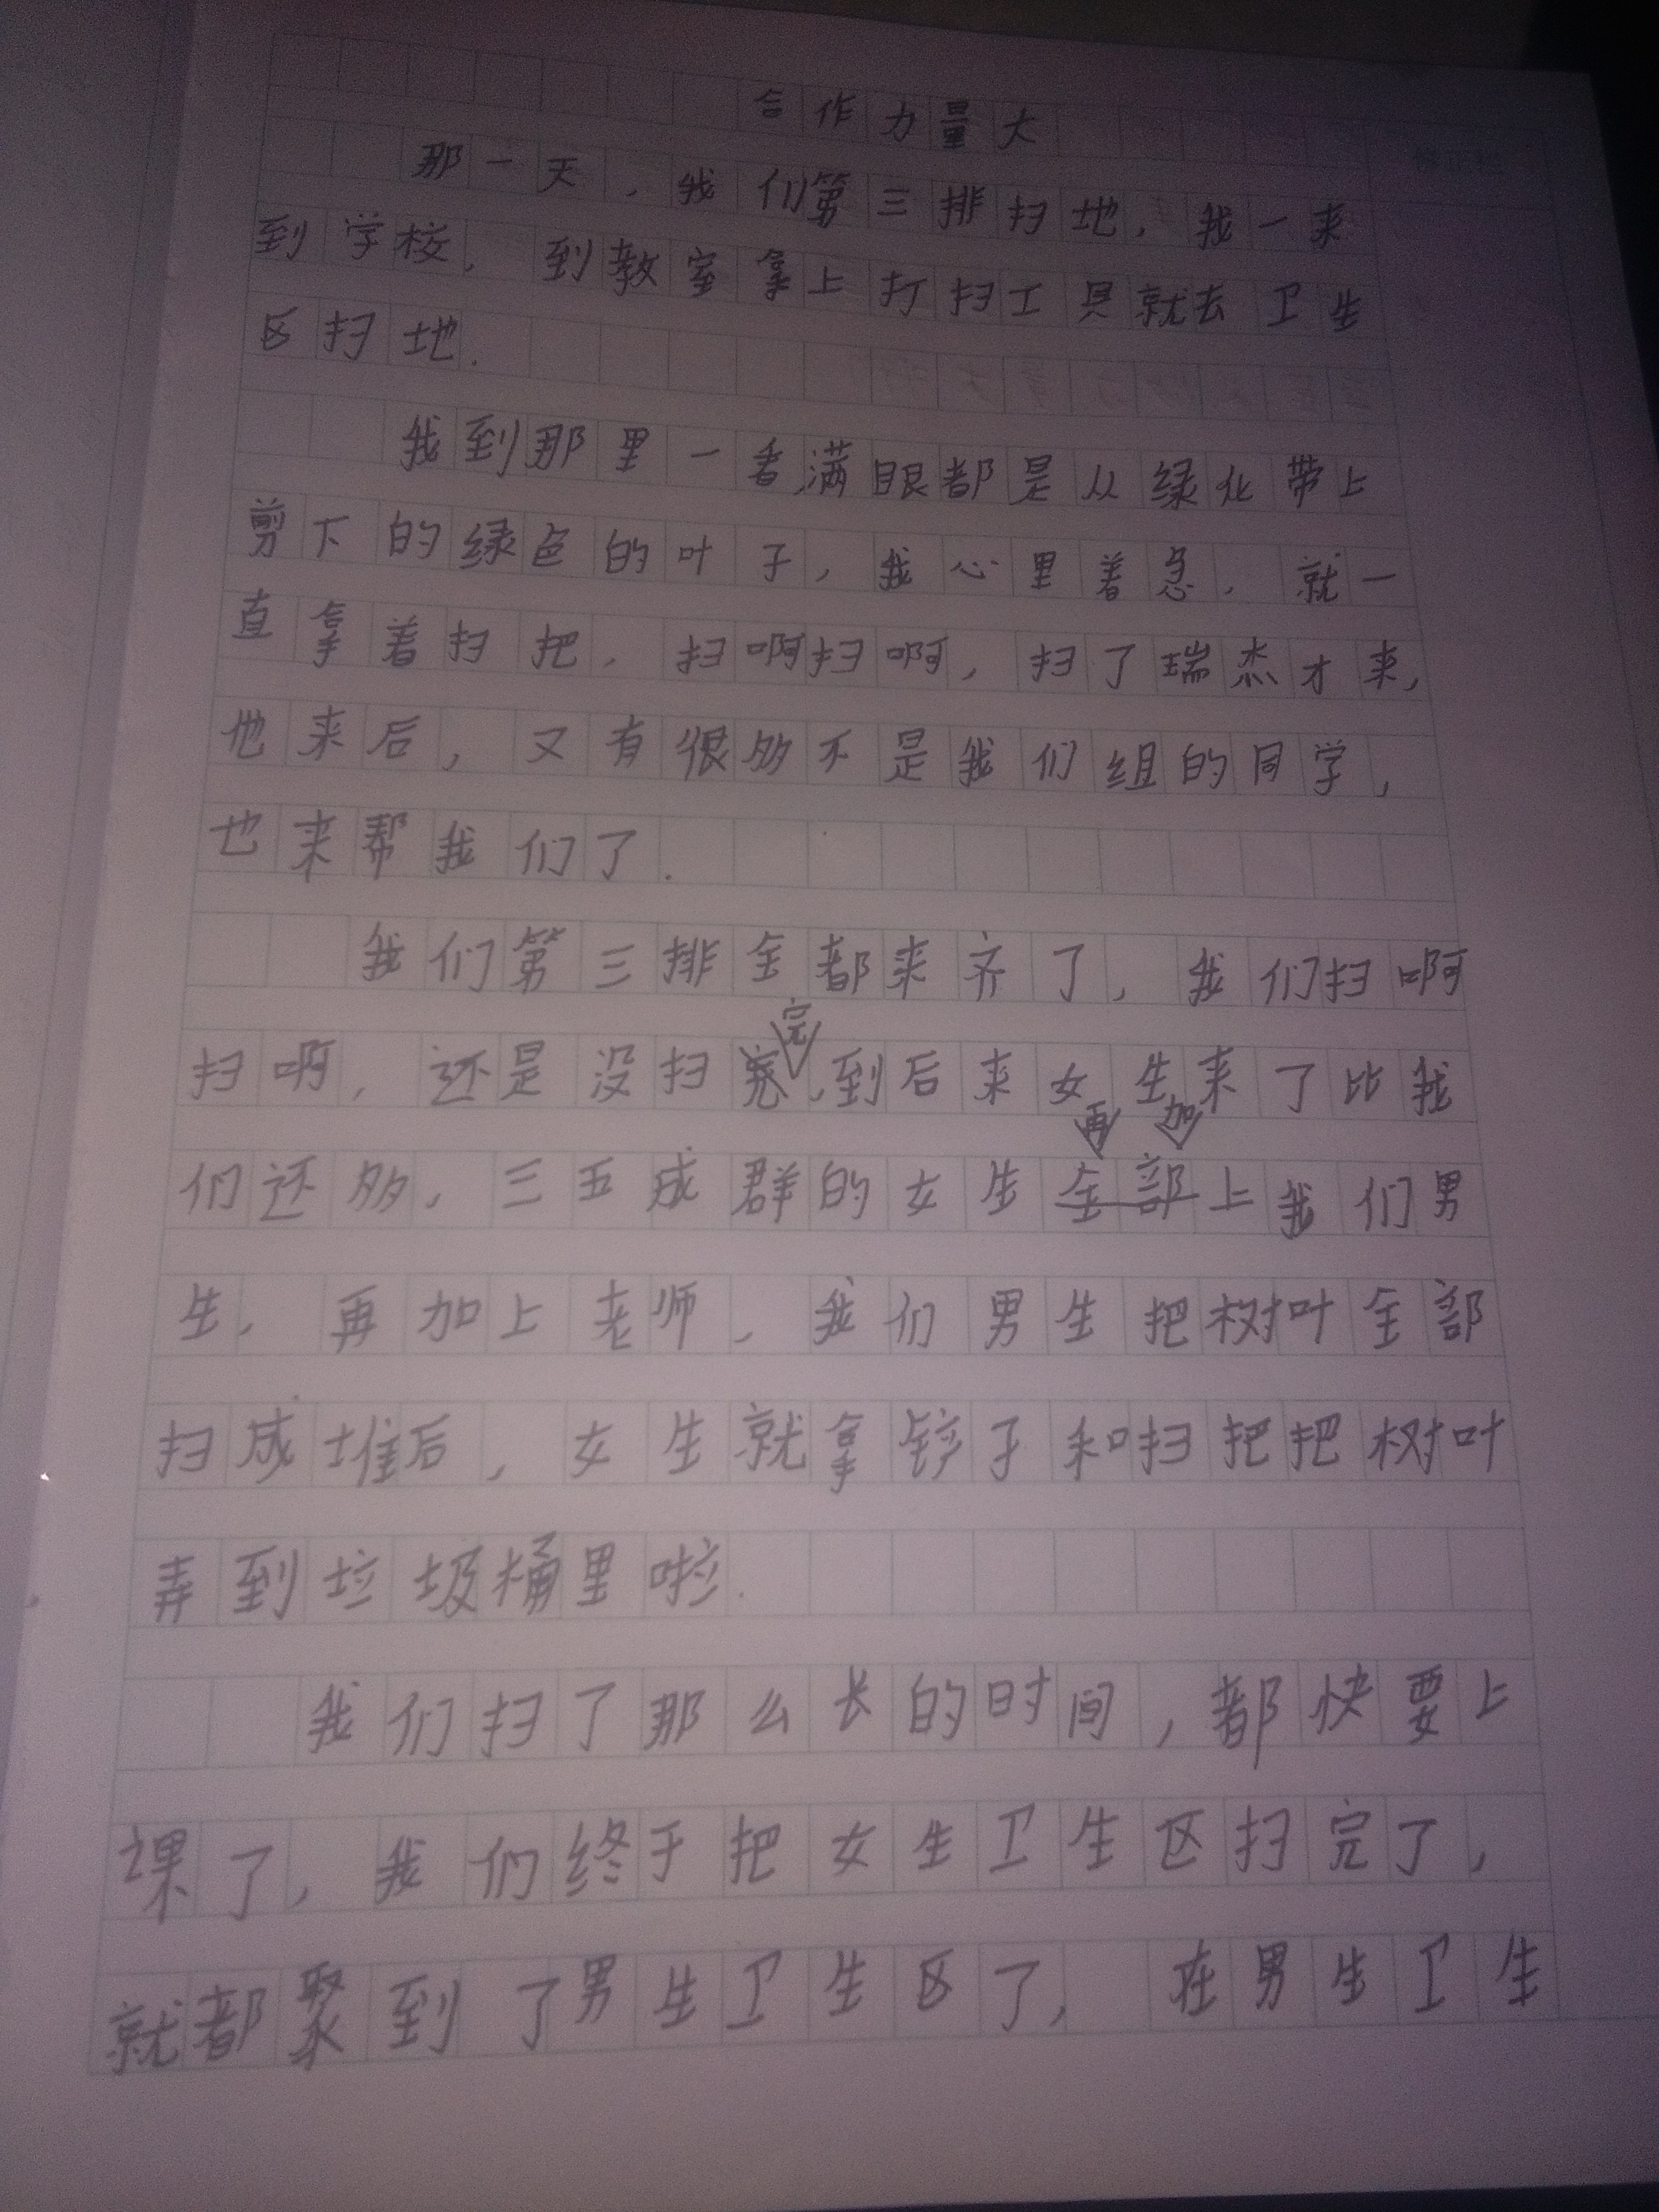 合作力量大
那一天，我们第三排扫地，我一来
到学校，到教室拿上打扫工具就去卫生
区扫地.
我到那里一看,满眼都是从绿化带上
剪下的绿色的叶子，我心里着急，就一
直拿着扫把，扫啊扫啊，扫了瑞杰才来，
他来后，又有很多不是我们组的同学，
也来帮我们了.
我们第三排全都来齐了，我们扫啊
完
扫啊，还是没扫，到后来女生来了比我
再 加
们还多，三五成群的女生全部上我们男
生，再加上老师，我们男生把树叶全部
扫成堆后，女生就拿铲子和扫把把树叶
弄到垃圾桶里啦.
我们扫了那么长的时间，都快要上
课了，我们终于把女生卫生区扫完了，
就都聚到了男生卫生区了，在男生卫生